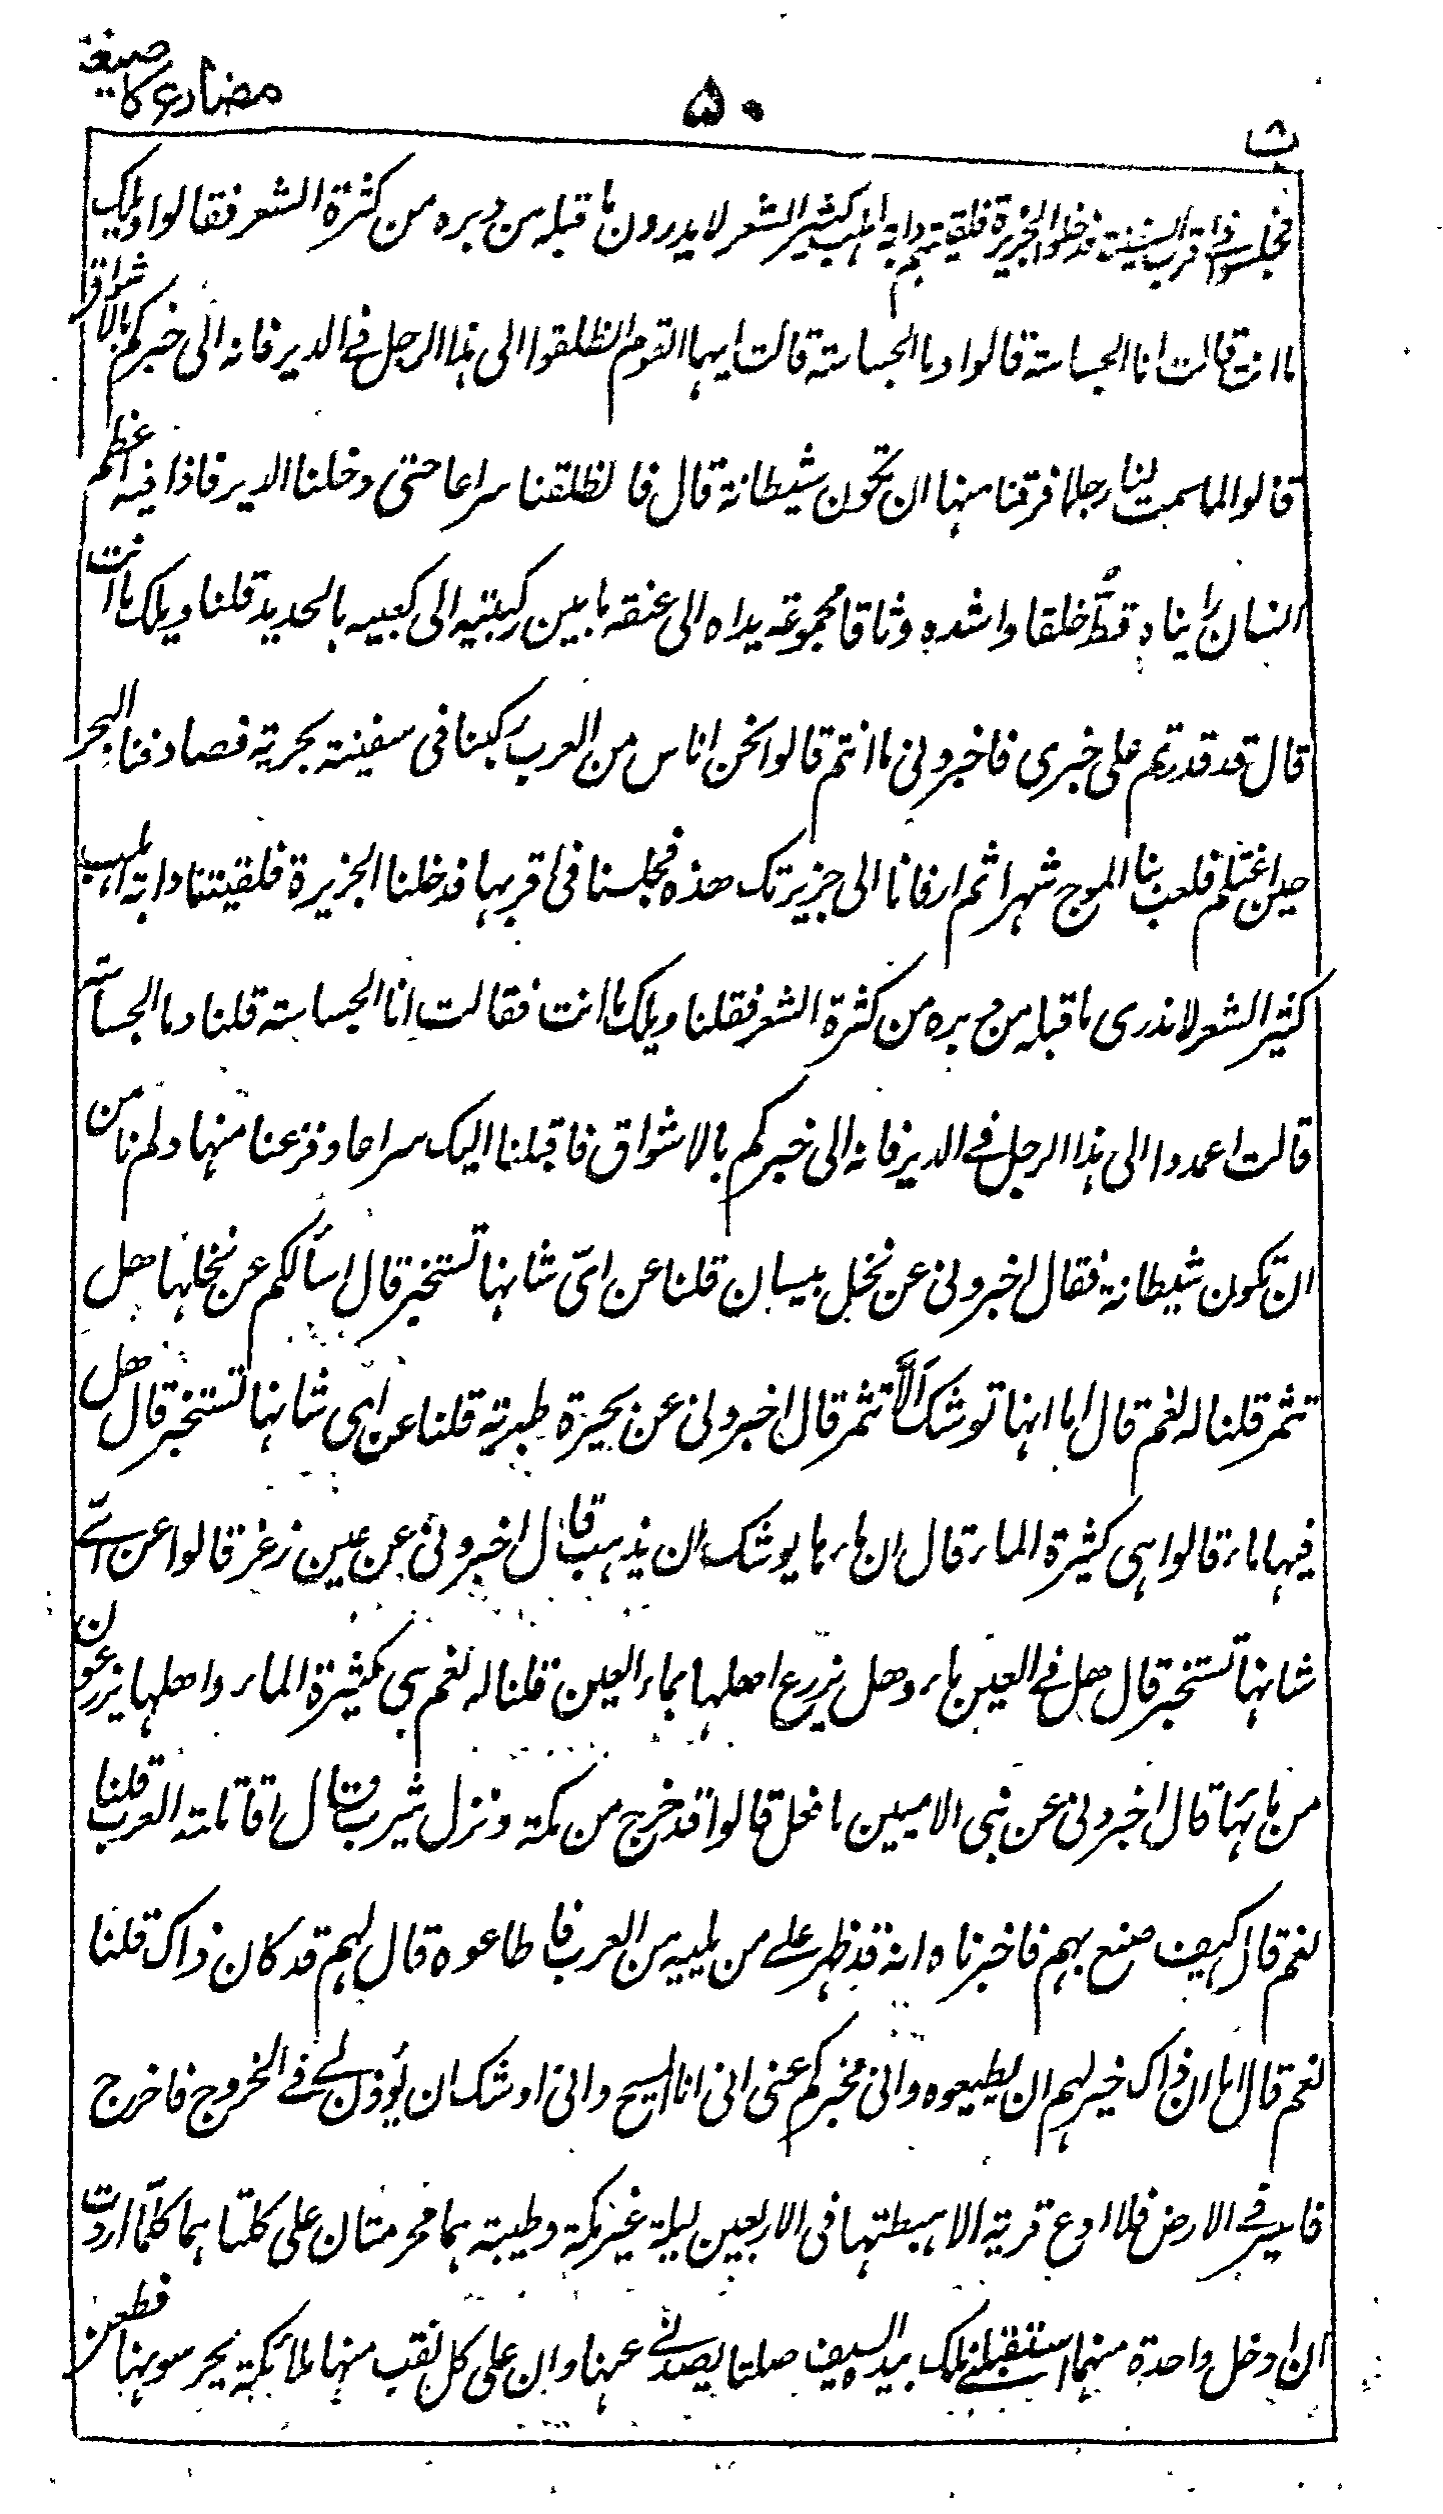 مضارع کا صیغہ
۵۰
ث
فجلسوا فی اقرب السفینۃ فدخلوا الجزیرۃ فلقیتہم دابۃ اہلب کثیر الشعر لا یدرون ما قبلہ من دبرہ من کثرۃ الشعر فقالوا ویلک
ما انت قالت انا الجساسۃ قالوا وما الجساسۃ قالت ایہا القوم انطلقوا الی ہذا الرجل فے الدیر فانہ الی خبرکم بالاشواق
قالوا لما سمت لنا رجلا فرقنا منہا ان تکون شیطانۃ قال فانطلقنا سراعا حتی دخلنا الدیر فاذا فیہ اعظم
انسان رایناہ قطُّ خلقا واشدہ وثاقا مجموعۃ یداہ الی عنقہ ما بین رکبتیہ الی کعبیہ بالحدید قلنا ویلک ما انت
قال قد قدرتم علی خبری فاخبرونی ما انتم قالوا نحن اناس من العرب رکبنا فی سفینۃ بحریۃ فصادفنا البحر
حین اغتلم فلعب بنا الموج شہرا ثم ارفانا الی جزیرتک ھذہ فجلسنا فی اقربہا فدخلنا الجزیرۃ فلقیتنا دابۃ اہلب
کثیر الشعر لا ندری ما قبلہ من دبرہ من کثرۃ الشعر فقلنا ویلک ما انت فقالت انا الجساسۃ قلنا وما الجساسۃ
قالت اعمدوا الی ہذا الرجل فے الدیر فانہ الی خبرکم بالاشواق فاقبلنا الیک سراعا وفزعنا منہا ولم نامن
ان تکون شیطانۃ فقال اخبرونی عن نخل بیسان قلنا عن ایّ شانہا تستخبر قال اسألکم عن نخلہا ھل
تثمر قلنا لہ نعم قال اما انہا توشک الَّا تثمر قال اخبرونی عن بحیرۃ طبریۃ قلنا عن ای شانہا تستخبر قال ھل
فیہا ماء قالوا ہی کثیرۃ الماء قال ان ماءہا یوشک ان یذہب قال اخبرونی عن عین زغر قالوا عن ایّ
شانہا تستخبر قال ھل فے العین ماء وھل یزرع اھلہا بماء العین قلنا لہ نعم ہی کثیرۃ الماء واھلہا یزرعون
من مائہا قال اخبرونی عن نبی الامیین ما فعل قالوا قد خرج من مکۃ ونزل یثرب قال اقاتلتہ العرب قلنا
نعم قال کیف صنع بہم فاخبرناہ انہ قد ظہر علے من یلیہ من العرب فاطاعوہ قال لہم قد کان ذاک قلنا
نعم قال اما ان ذاک خیر لہم ان یطیعوہ وانی مخبرکم عنی انی انا المسیح وانی اوشک ان یؤذن لے فے الخروج فاخرج
فاسیر فے الارض فلا ادع قریۃ الا ہبطتہا فی الاربعین لیلۃ غیر مکۃ وطیبۃ ہما محرمتان علی کلتاہما کلّما اردت
ان ادخل واحدۃ منہما استقبلنے ملک بیدہ السیف صلتا یصدنے عنہا وان علی کل نقب منہا ملائکۃ یحرسونہا فطعن